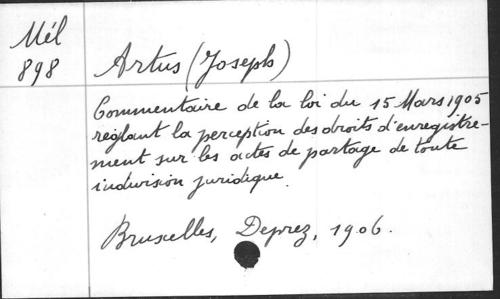 Mél
898
Artus (Joseph)
Commentaire de la loi du 15 Mars 1905
réglant la perception des droits d'enregistre-
ment sur les actes de partage de toute
indivision juridique.
Bruxelles, Deprez, 1906.